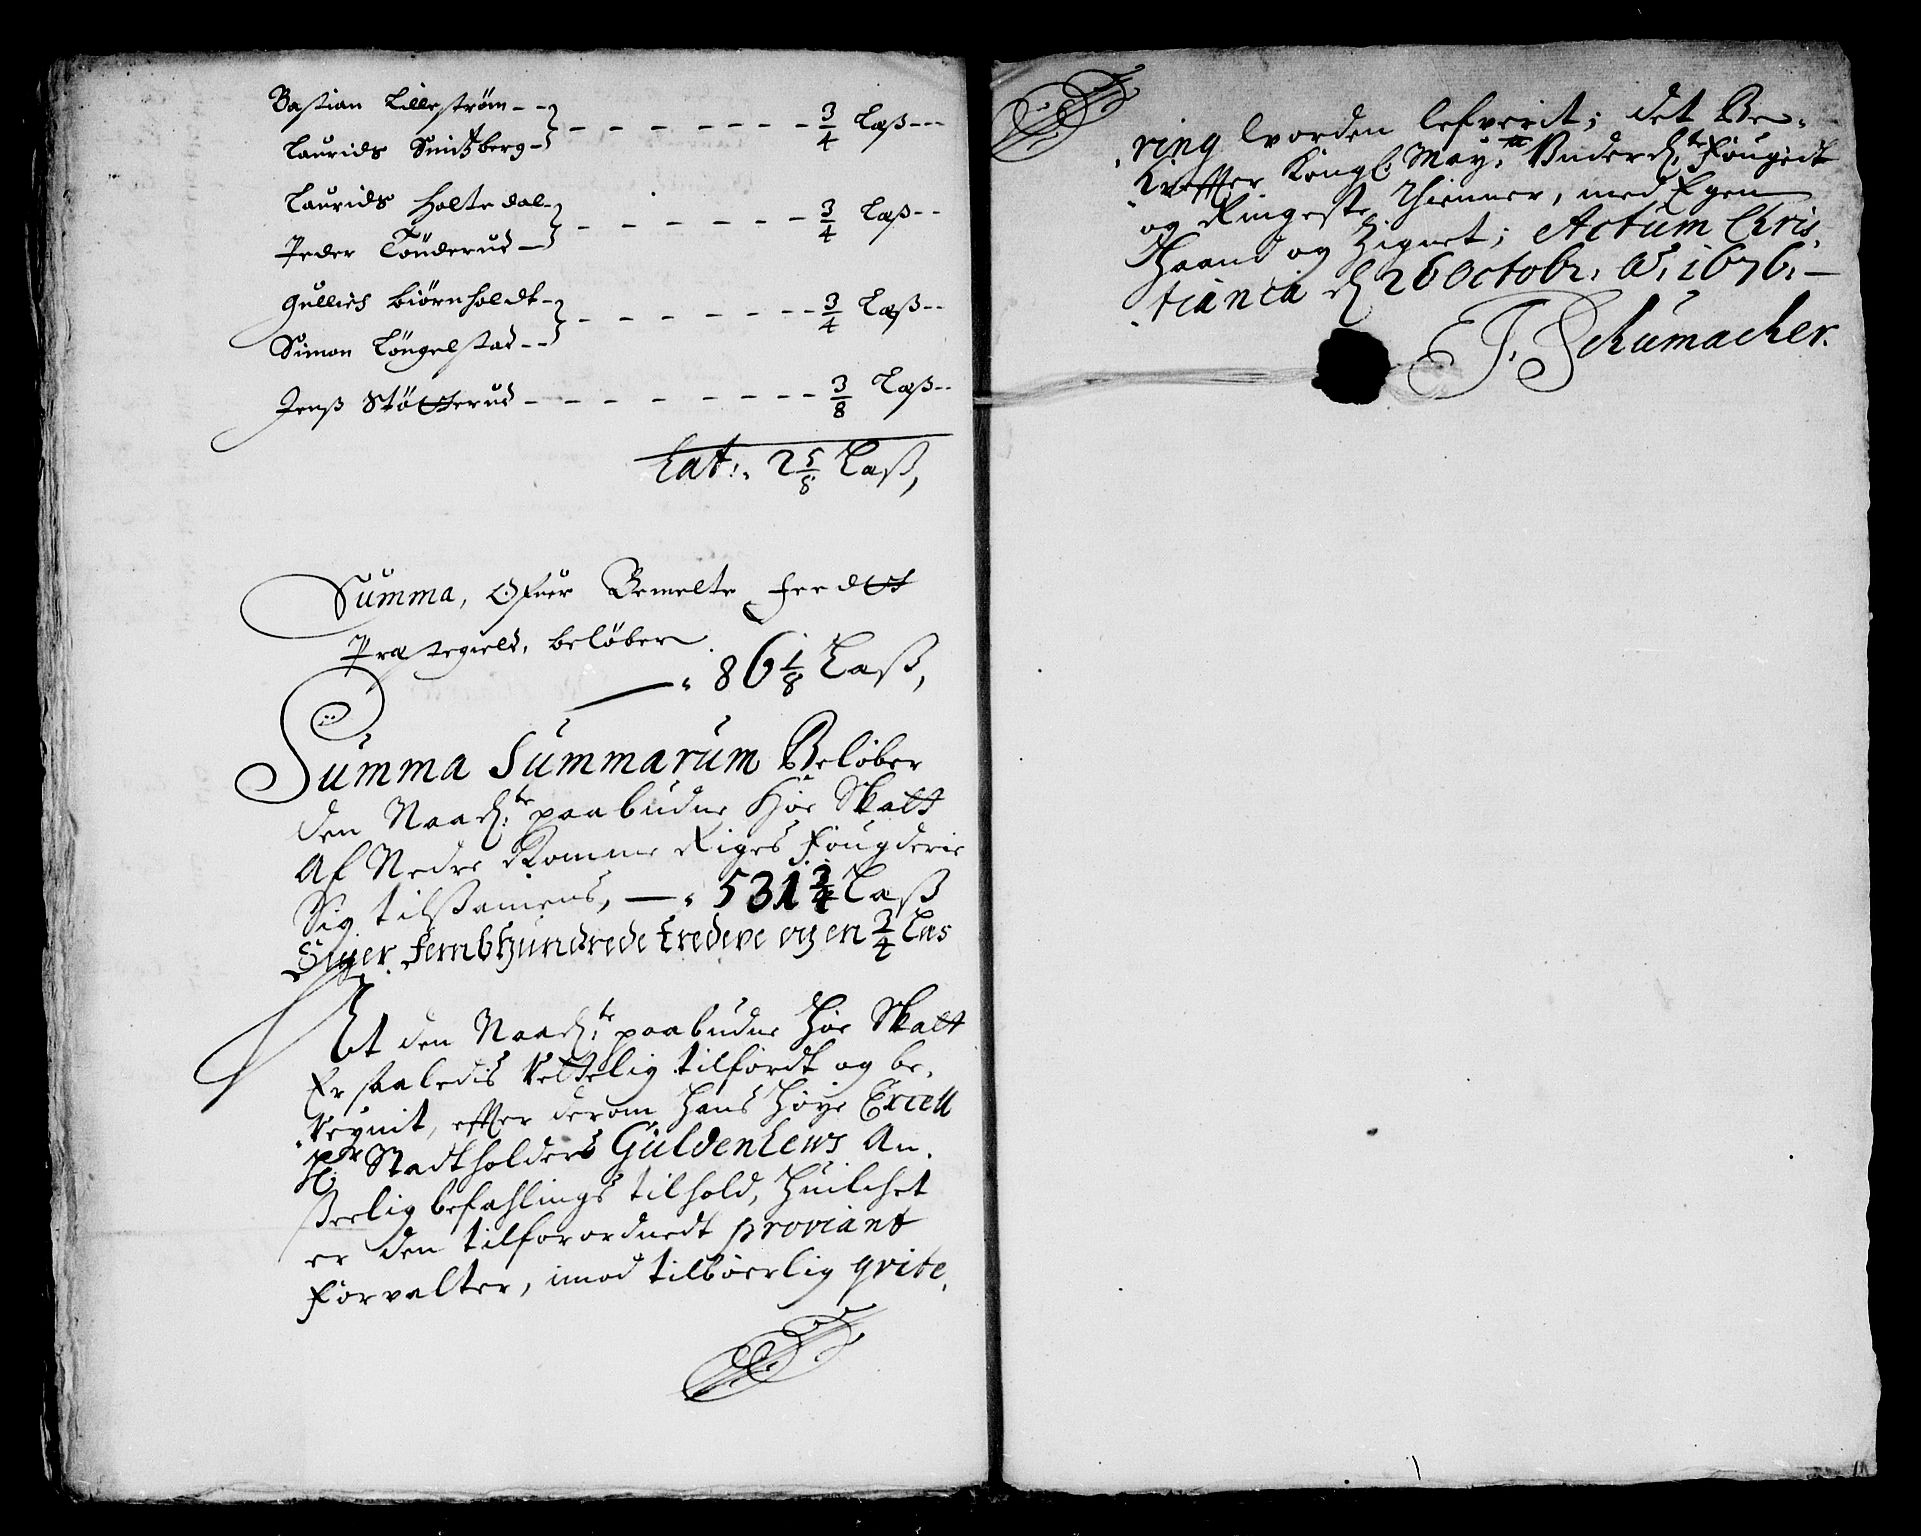 Bastian Lillestrøm - -
Laurids Smitzberg - } - - - - - - - 3/4 Læß - - -
Laurids Holtedal -
Peder Tönderud - } - - - - - - - 3/4 Læß - -
Gullich Biörnholdt -
Simon Löngelstad - - } - - - - - - - 3/4 Læß - -
Jenß Stötterud - - - - - - - - 3/8 Læß - -
Lat: 2 5/8 Læß,
Summa, Ofuer Bemelte Feedtt
Præstegield, beløber
86 1/8 Læß,
Summa Summarum Beløber
den Naadh:te paabudne Höe Skatt
Af Nedre Romme Riges Fougderie
Sig tilsamens, — 531 3/4 Læß
Siger Fembhundrede tredeve og en 3/4 Læs
At den Naadh:te paabudne Höe Skatt
Er saaledis Rettelig tilfördt og be,
Regnit, effter derom Hans Höye Excell
Hr Stadtholders Güldenlews An,
seelig befahlings tilhold, Huilchet
er den tilforordnedt proviant
Forvalter, imod tilbörlig qvite,
,ring worden lefverit; det Be,
,kreffter Kongl: May:tts Underdh:te Fougedt
og Ringeste Thienner, med Egen
Haand og Zignet; Actum Chris,
,tiania dh 26 Octobr: Ao: 1676. —
J. Schumacher.